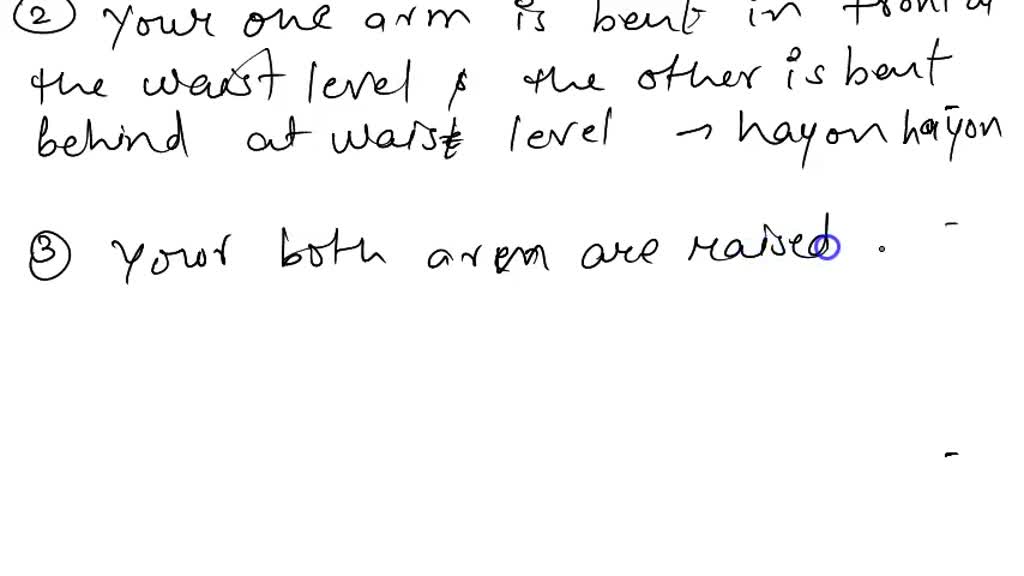 ② Your one arm is bent in front of
the waist level & the other is bent
behind at waist level → hayon hayon
③ Your both arem are raised .